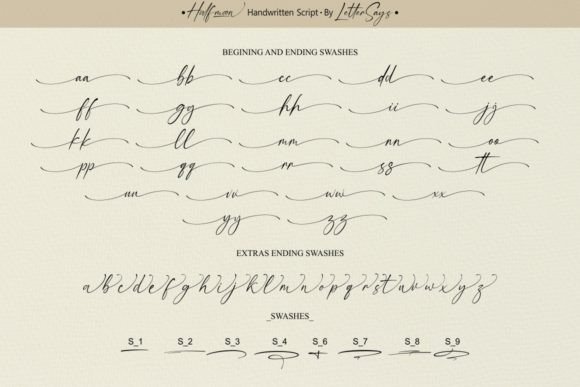 • Halfmoon Handwritten Script • By LetterSays •
BEGINING AND ENDING SWASHES
aa bb cc dd ee
ff gg hh ii jj
kk ll mm nn oo
pp qq rr ss tt
uu vv ww xx
yy zz
EXTRAS ENDING SWASHES
a b c d e f g h i j k l m n o p q r s t u v w x y z
_SWASHES_
S_1 S_2 S_3 S_4 S_6 S_7 S_8 S_9